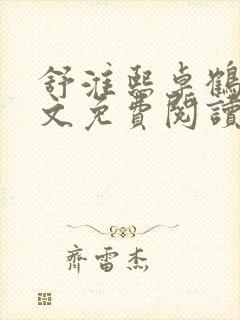 舒淮熙卓鶴
文免費閱讀
齊雷杰